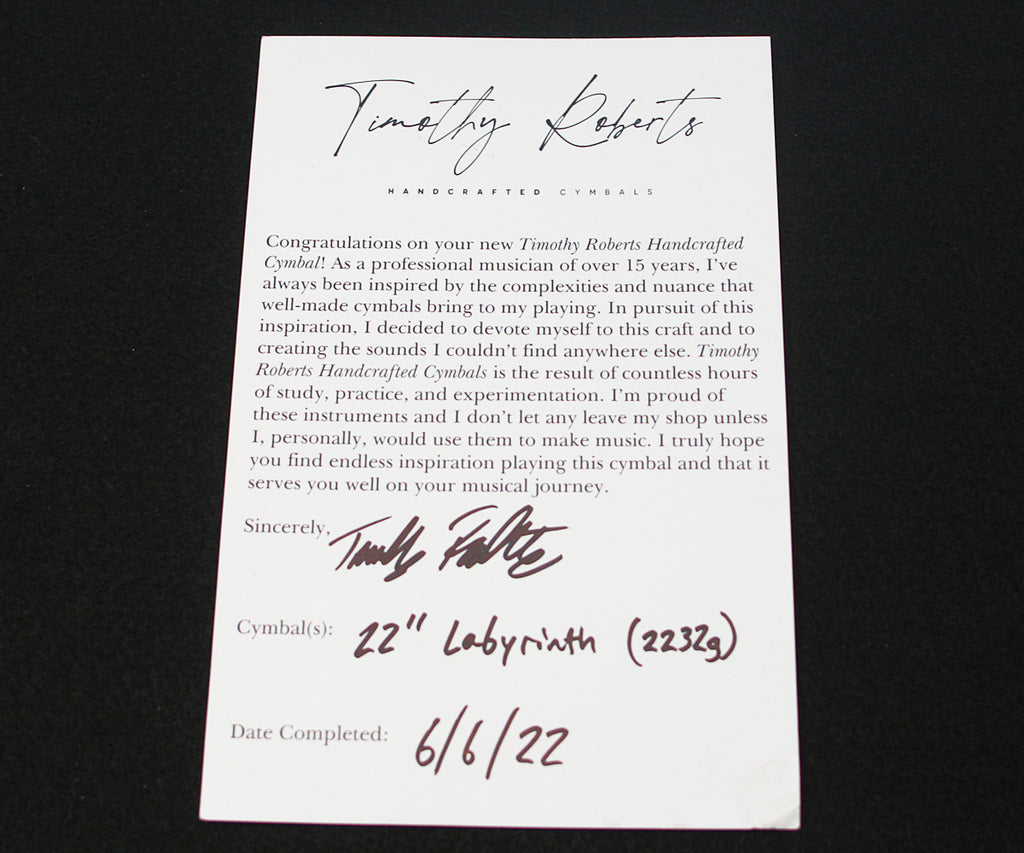 Timothy Roberts
HANDCRAFTED CYMBALS
Congratulations on your new Timothy Roberts Handcrafted
Cymbal! As a professional musician of over 15 years, I've
always been inspired by the complexities and nuance that
well-made cymbals bring to my playing. In pursuit of this
inspiration, I decided to devote myself to this craft and to
creating the sounds I couldn't find anywhere else. Timothy
Roberts Handcrafted Cymbals is the result of countless hours
of study, practice, and experimentation. I'm proud of
these instruments and I don't let any leave my shop unless
I, personally, would use them to make music. I truly hope
you find endless inspiration playing this cymbal and that it
serves you well on your musical journey.
Sincerely,
Cymbal(s): 22" Labyrinth (2232g)
Date Completed: 6/6/22